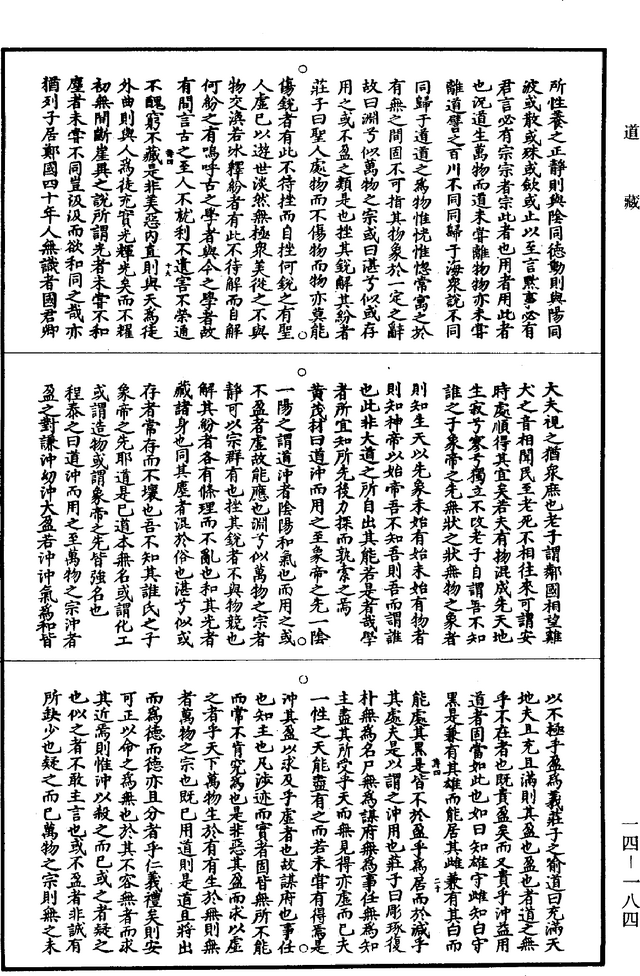 道藏
所性養之正靜則與陰同德動則與陽同
波或散或殊或斂或止以至言默事必有
君言必有宗宗者宗此者也用者用此者
也況道生萬物而道未嘗離物物亦未嘗
離道譬之百川不同同歸于海衆說不同
同歸于道道之為物惟恍惟惚常寓之於
有無之間固不可指其物象於一定之辭
故曰淵兮似萬物之宗或曰湛兮似或存
用之或不盈之類是也挫其銳解其紛者
莊子曰聖人處物而不傷物而物亦莫能
傷銳者有此不待挫而自挫何銳之有聖
人虛已以遊世淡然無極衆美從之不與
物交渙若冰釋紛者有此不待解而自解
何紛之有嗚呼古之學者與今之學者故
有間言古之至人不就利不違害不榮通
不醜窮不藏是非美惡內直則與天為徒
外曲則與人為徒充實光輝光矣而不耀
初無間斷崖異之說所謂光者未嘗不和
塵者未嘗不同豈汲汲而欲和同之哉亦
猶列子居鄭國四十年人無識者國君卿
大夫視之猶衆庶也老子謂鄰國相望雞
犬之音相聞民至老死不相往來可謂安
時處順得其宜矣若夫有物混成先天地
生寂兮寥兮獨立不改老子自謂吾不知
誰之子象帝之先無狀之狀無物之象者
則知生天以先象未始有始未始有物者
則知神帝以始帝吾不知吾則吾而謂誰
也此非大道之所自出其能若是者哉學
者所宜知所先後力探而孰索之焉
黃茂材曰道沖而用之至象帝之先一陰
一陽之謂道沖者陰陽和氣也而用之或
不盈者虛故能應也淵兮似萬物之宗者
靜可以宗群有也挫其銳者不與物競也
解其紛者各有條理而不亂也和其光者
藏諸身也同其塵者混於俗也湛兮似或
存者常存而不壞也吾不知其誰氏之子
象帝之先耶道是已道本無名或謂化工
或謂造物或謂象帝之先皆強名也
程泰之曰道沖而用之至萬物之宗沖者
盈之對謙沖幼沖大盈若沖沖氣為和皆
以不極乎盈為義莊子之喻道曰充滿天
地夫且充且滿則其盈也盈也者道之無
乎不在者也既貴盈矣而又貴乎沖益用
道者固當如此也如曰知雄守雌知白守
黑是兼有其雄而能居其雌兼有其白而
能處其黑是皆不於盈乎為居而於減乎
其處夫是以謂之沖用也莊子曰彫琢復
朴無為名尸無為謀府無為事任無為知
主盡其所受乎天而無見得亦虛而已夫
一性之天能盡有之而若未嘗有得焉是
沖其盈以求及乎虛者也故謀府也事任
也知主也凡涉迹而實者固皆無所不能
而常不肯究為也是非惡其盈而求以虛
之者乎天下萬物生於有有生於無則無
者萬物之宗也既已用道則是道且將出
而為德而德亦且分者乎仁義禮矣則安
可正以命之為無也於其不容無者而求
其近焉則惟沖以殺之而已或之者疑之
也似之者不敢主言也或不盈者非誠有
所缺少也疑之而已萬物之宗則無之未
一四—一八四